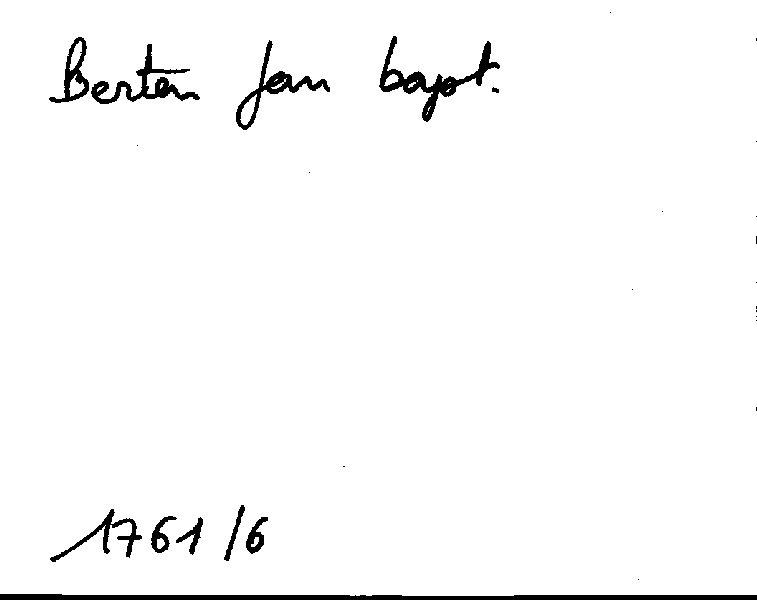 Berten Jan bapt.
1761/6